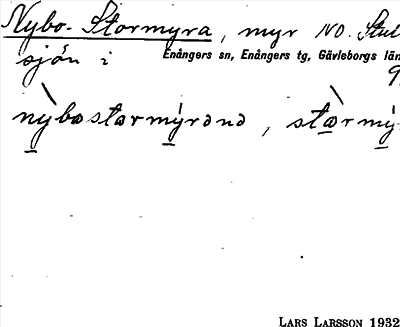 Nybo-Stormyra, myr NO. Stul
sjön i Enångers sn, Enångers tg, Gävleborgs län
9
nỳbostormýrənə, stòrmý
LARS LARSSON 1932